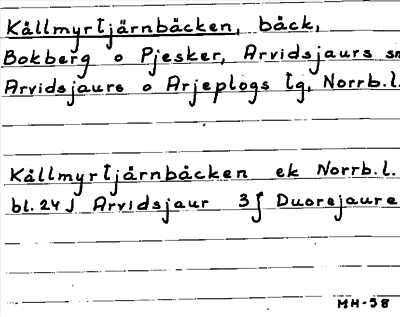 Kållmyrtjärnbäcken, bäck,
Bokberg o Pjesker, Arvidsjaurs sn
Arvidsjaurs o Arjeplogs tg, Norrb.l.
Kållmyrtjärnbäcken ek Norrb.l.
bl. 24 J Arvidsjaur 3 f Duorejaure
MH-58